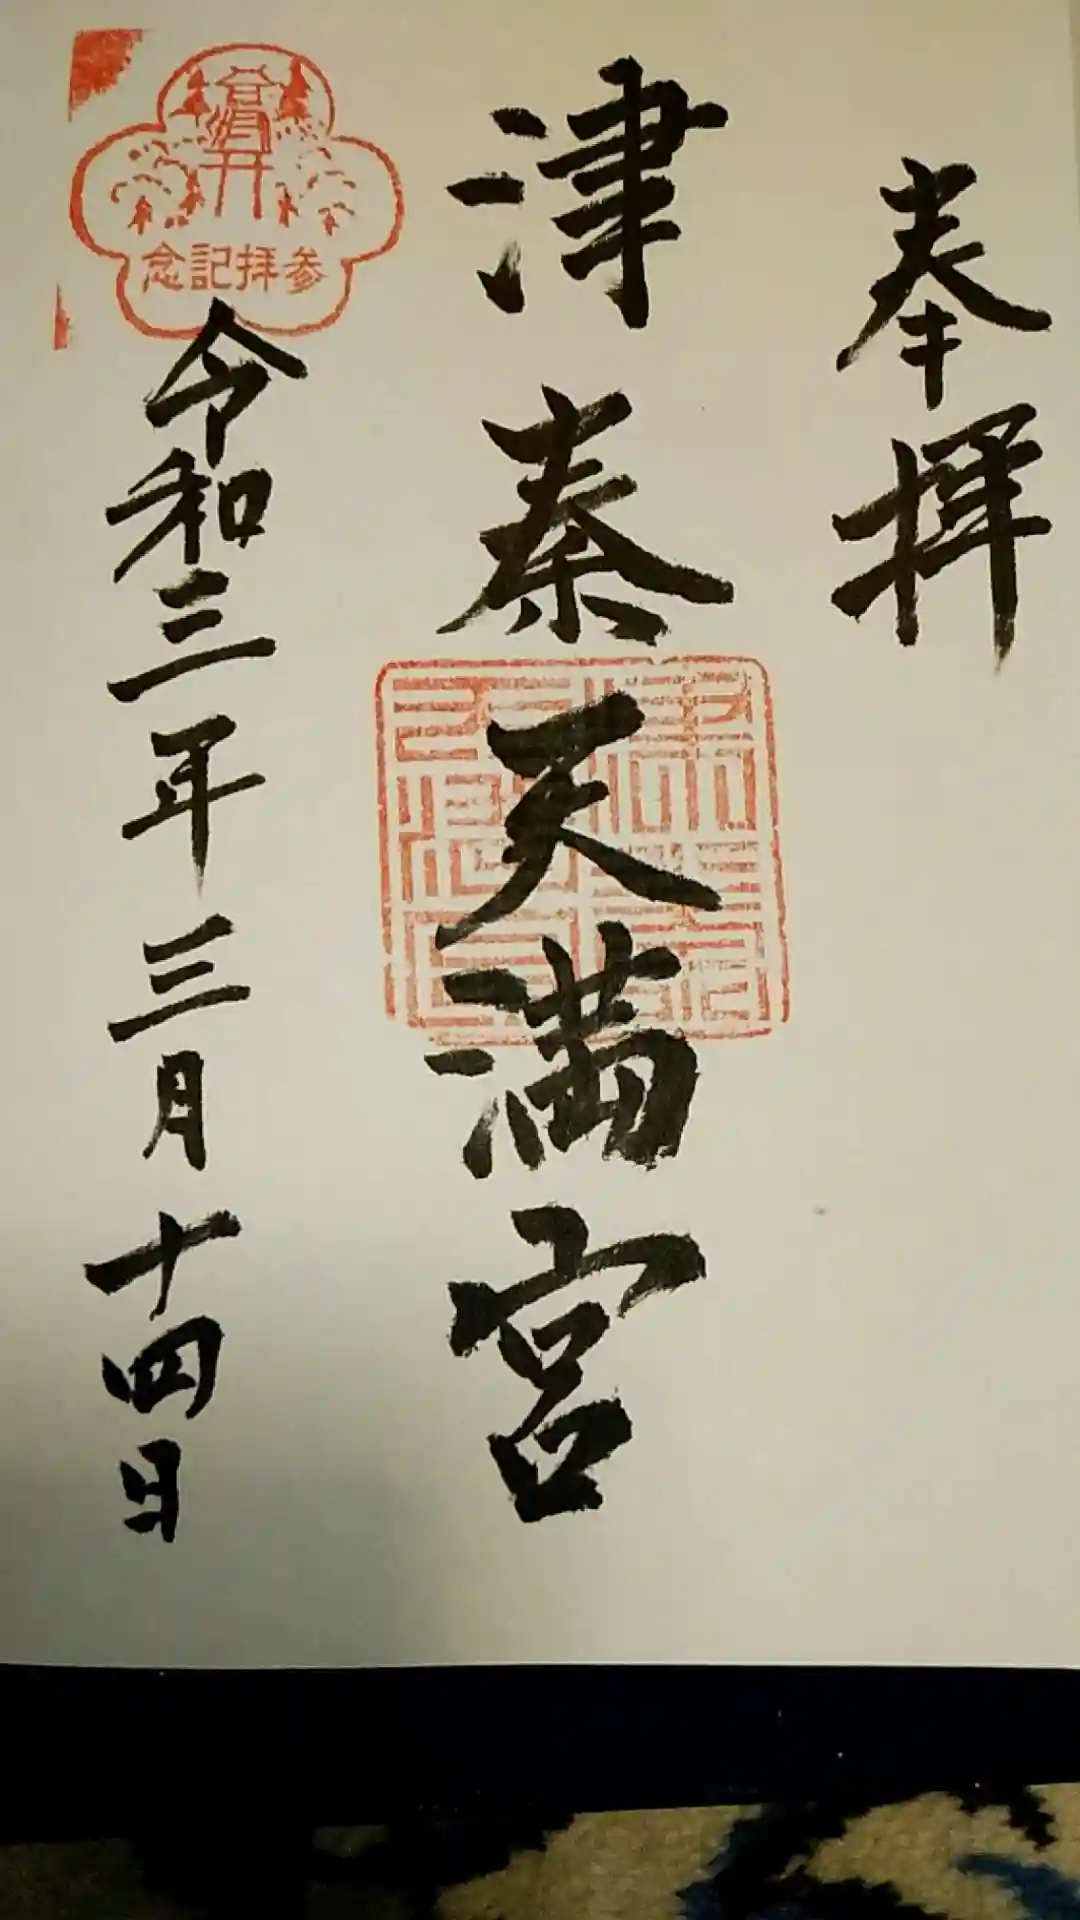 奉拝
津秦天満宮
参拝記念
令和三年三月十四日